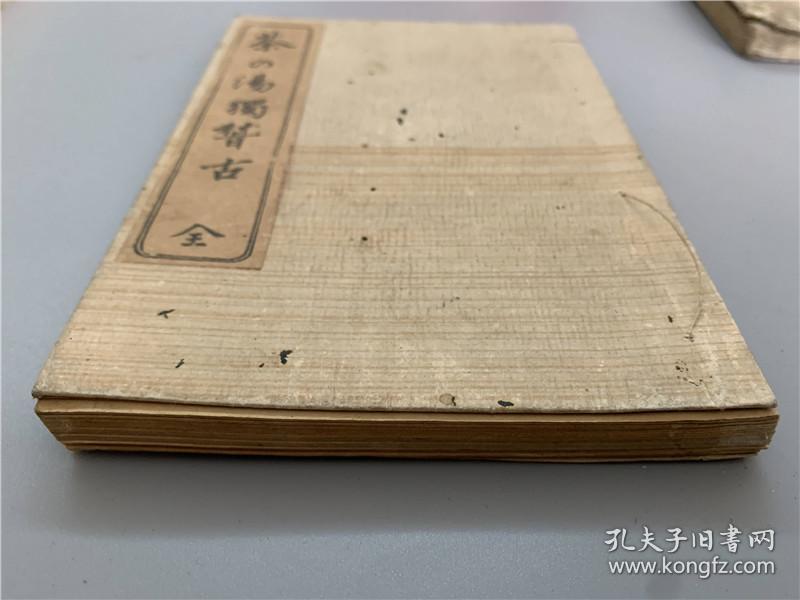 茶の湯獨稽古
全
孔夫子旧书网
www.kongfz.com